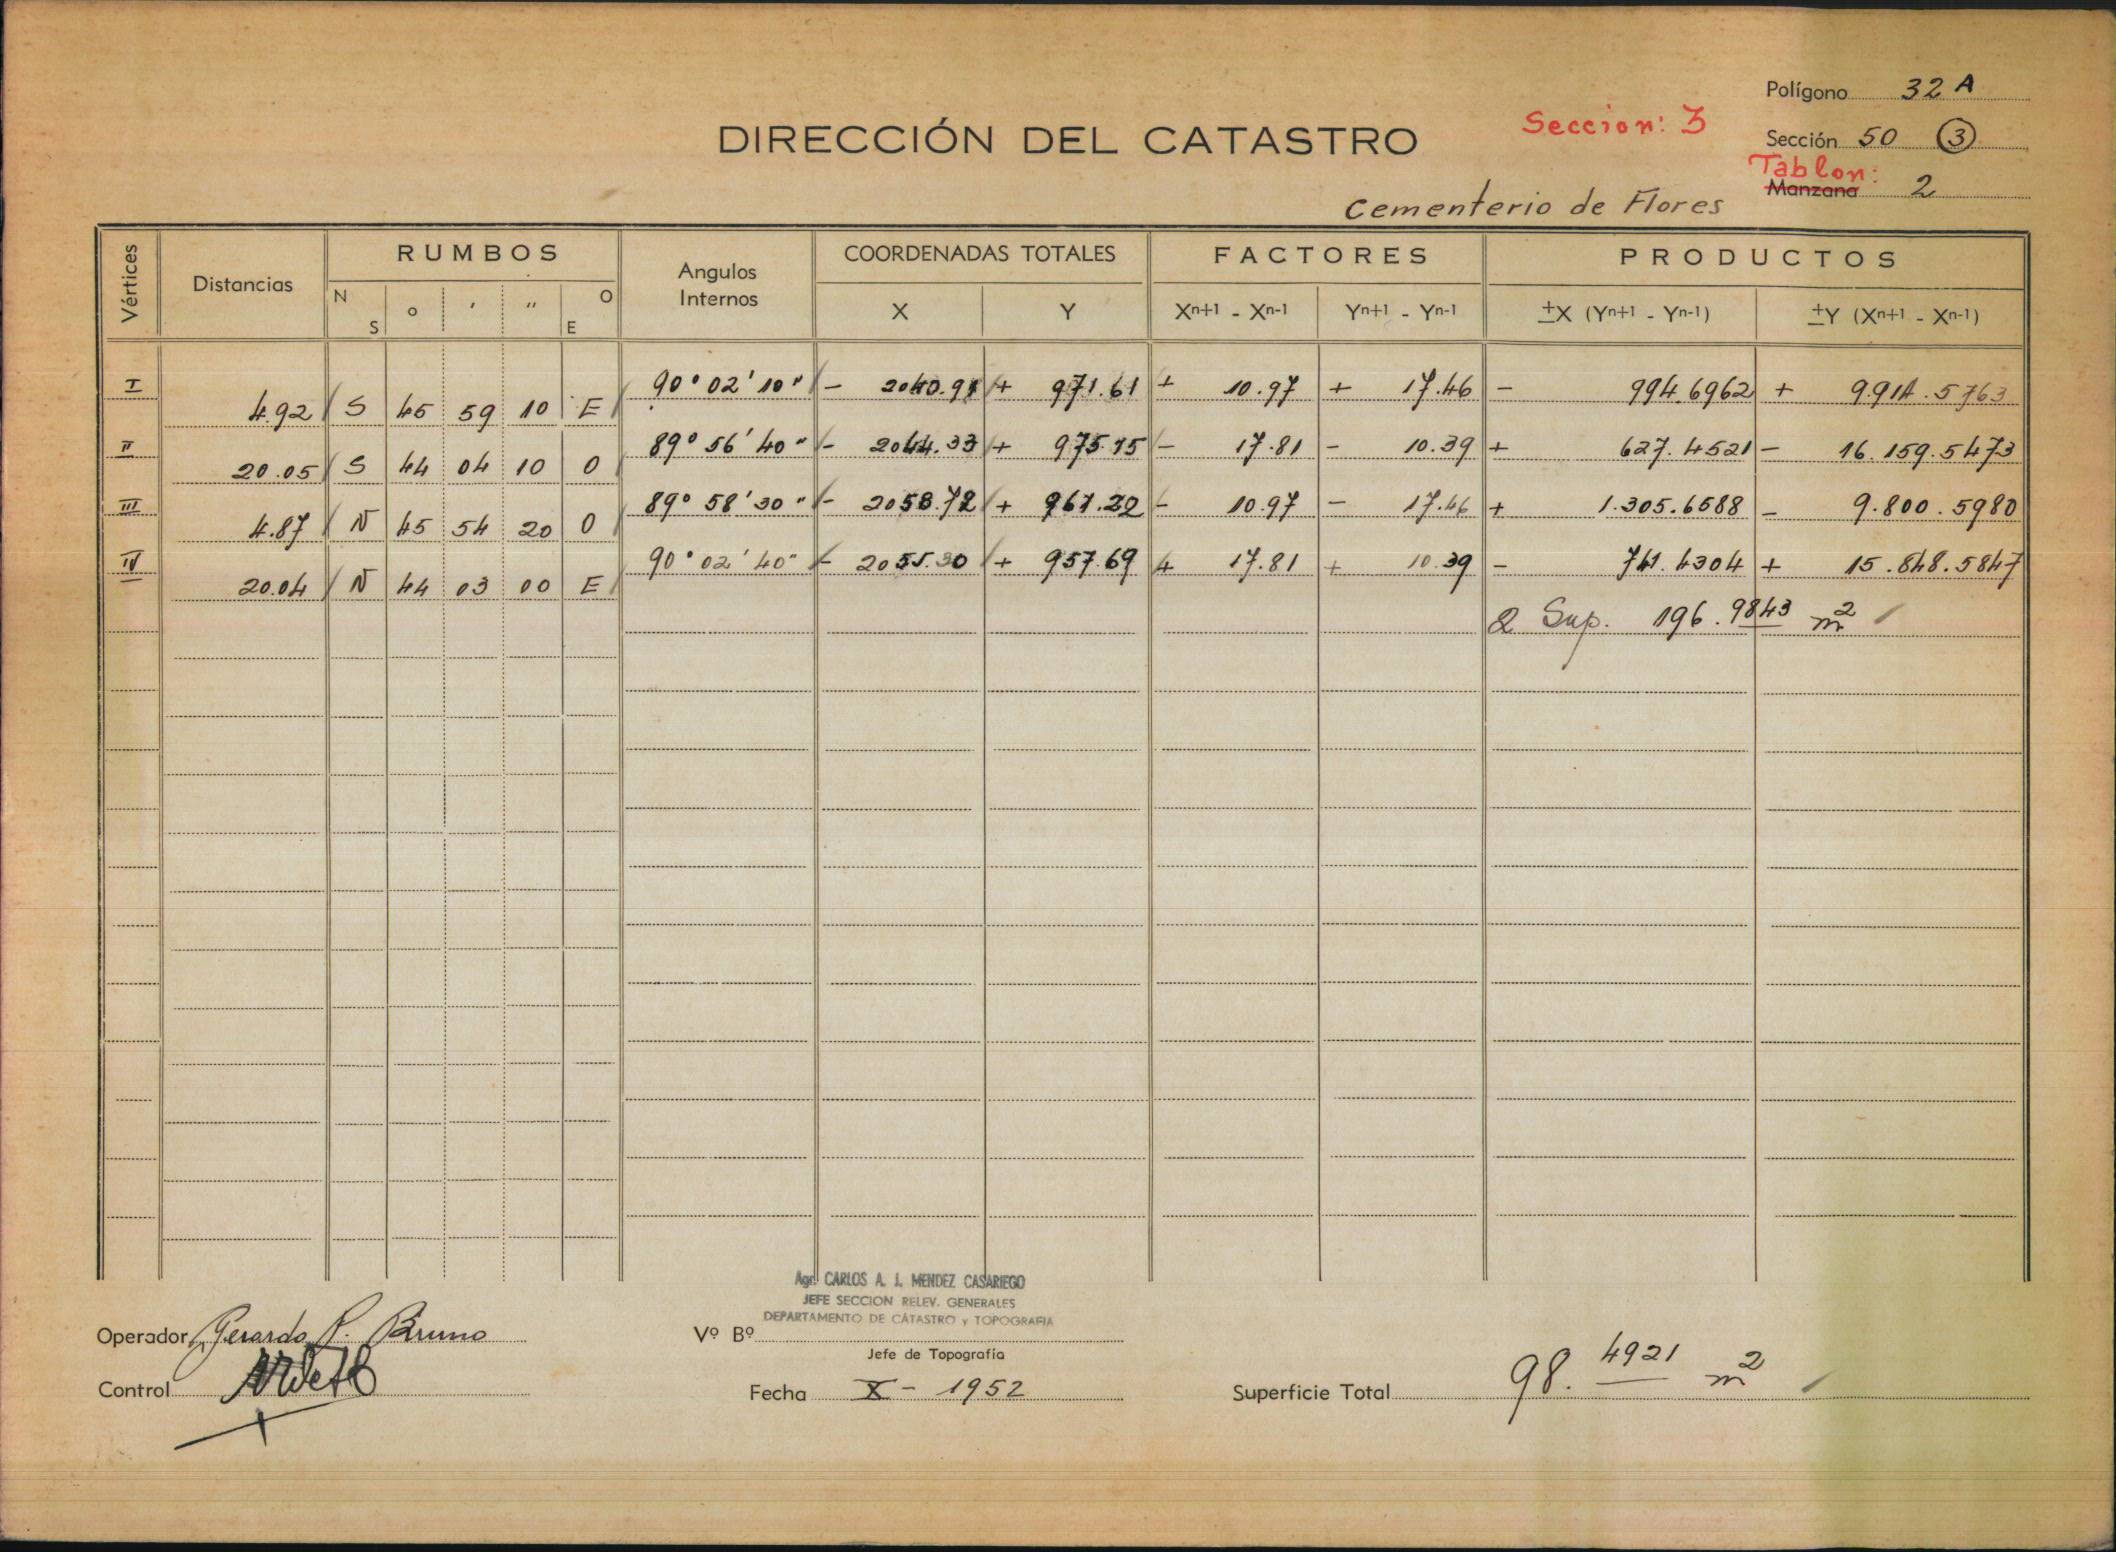 Polígono 32 A
DIRECCIÓN DEL CATASTRO
Seccion: 3
Sección 50 3
Tablon:
Manzana 2
Cementerio de Flores
Vértices Distancias RUMBOS Angulos Internos COORDENADAS TOTALES FACTORES PRODUCTOS
N S ° ' " O E X Y Xn+1 - Xn-1 Yn+1 - Yn-1 ±X (Yn+1 - Yn-1) ±Y (Xn+1 - Xn-1)
I 90° 02' 10" - 2040.91 + 971.61 + 10.97 + 17.46 - 994.6962 + 9.914.5763
4.92 S 45 59 10 E
II 89° 56' 40" - 2044.33 + 975.15 - 17.81 - 10.39 + 627.4521 - 16.159.5473
20.05 S 44 04 10 O
III 89° 58' 30" - 2058.72 + 961.22 - 10.97 - 17.46 + 1.305.6588 - 9.800.5980
4.87 N 45 54 20 O
IV 90° 02' 40" - 2055.30 + 957.69 + 17.81 + 10.39 - 741.4304 + 15.848.5847
20.04 N 44 03 00 E
2 Sup. 196.9843 m2
Agr. CARLOS A. J. MENDEZ CASARIEGO
JEFE SECCION RELEV. GENERALES
DEPARTAMENTO DE CATASTRO y TOPOGRAFIA
Operador Gerardo P. Bruno
Vº Bº
Jefe de Topografía
Control
Fecha X - 1952
Superficie Total 98.4921 m2